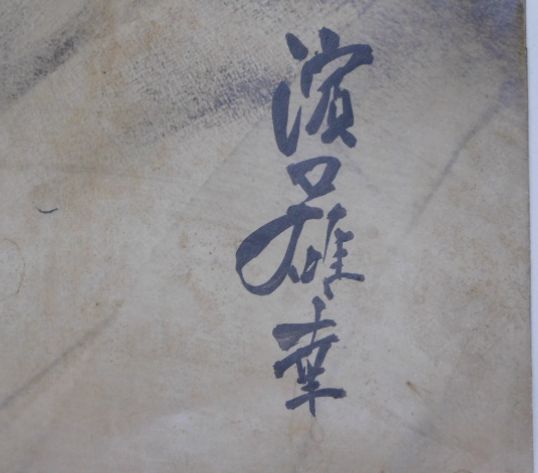 濱口雄幸